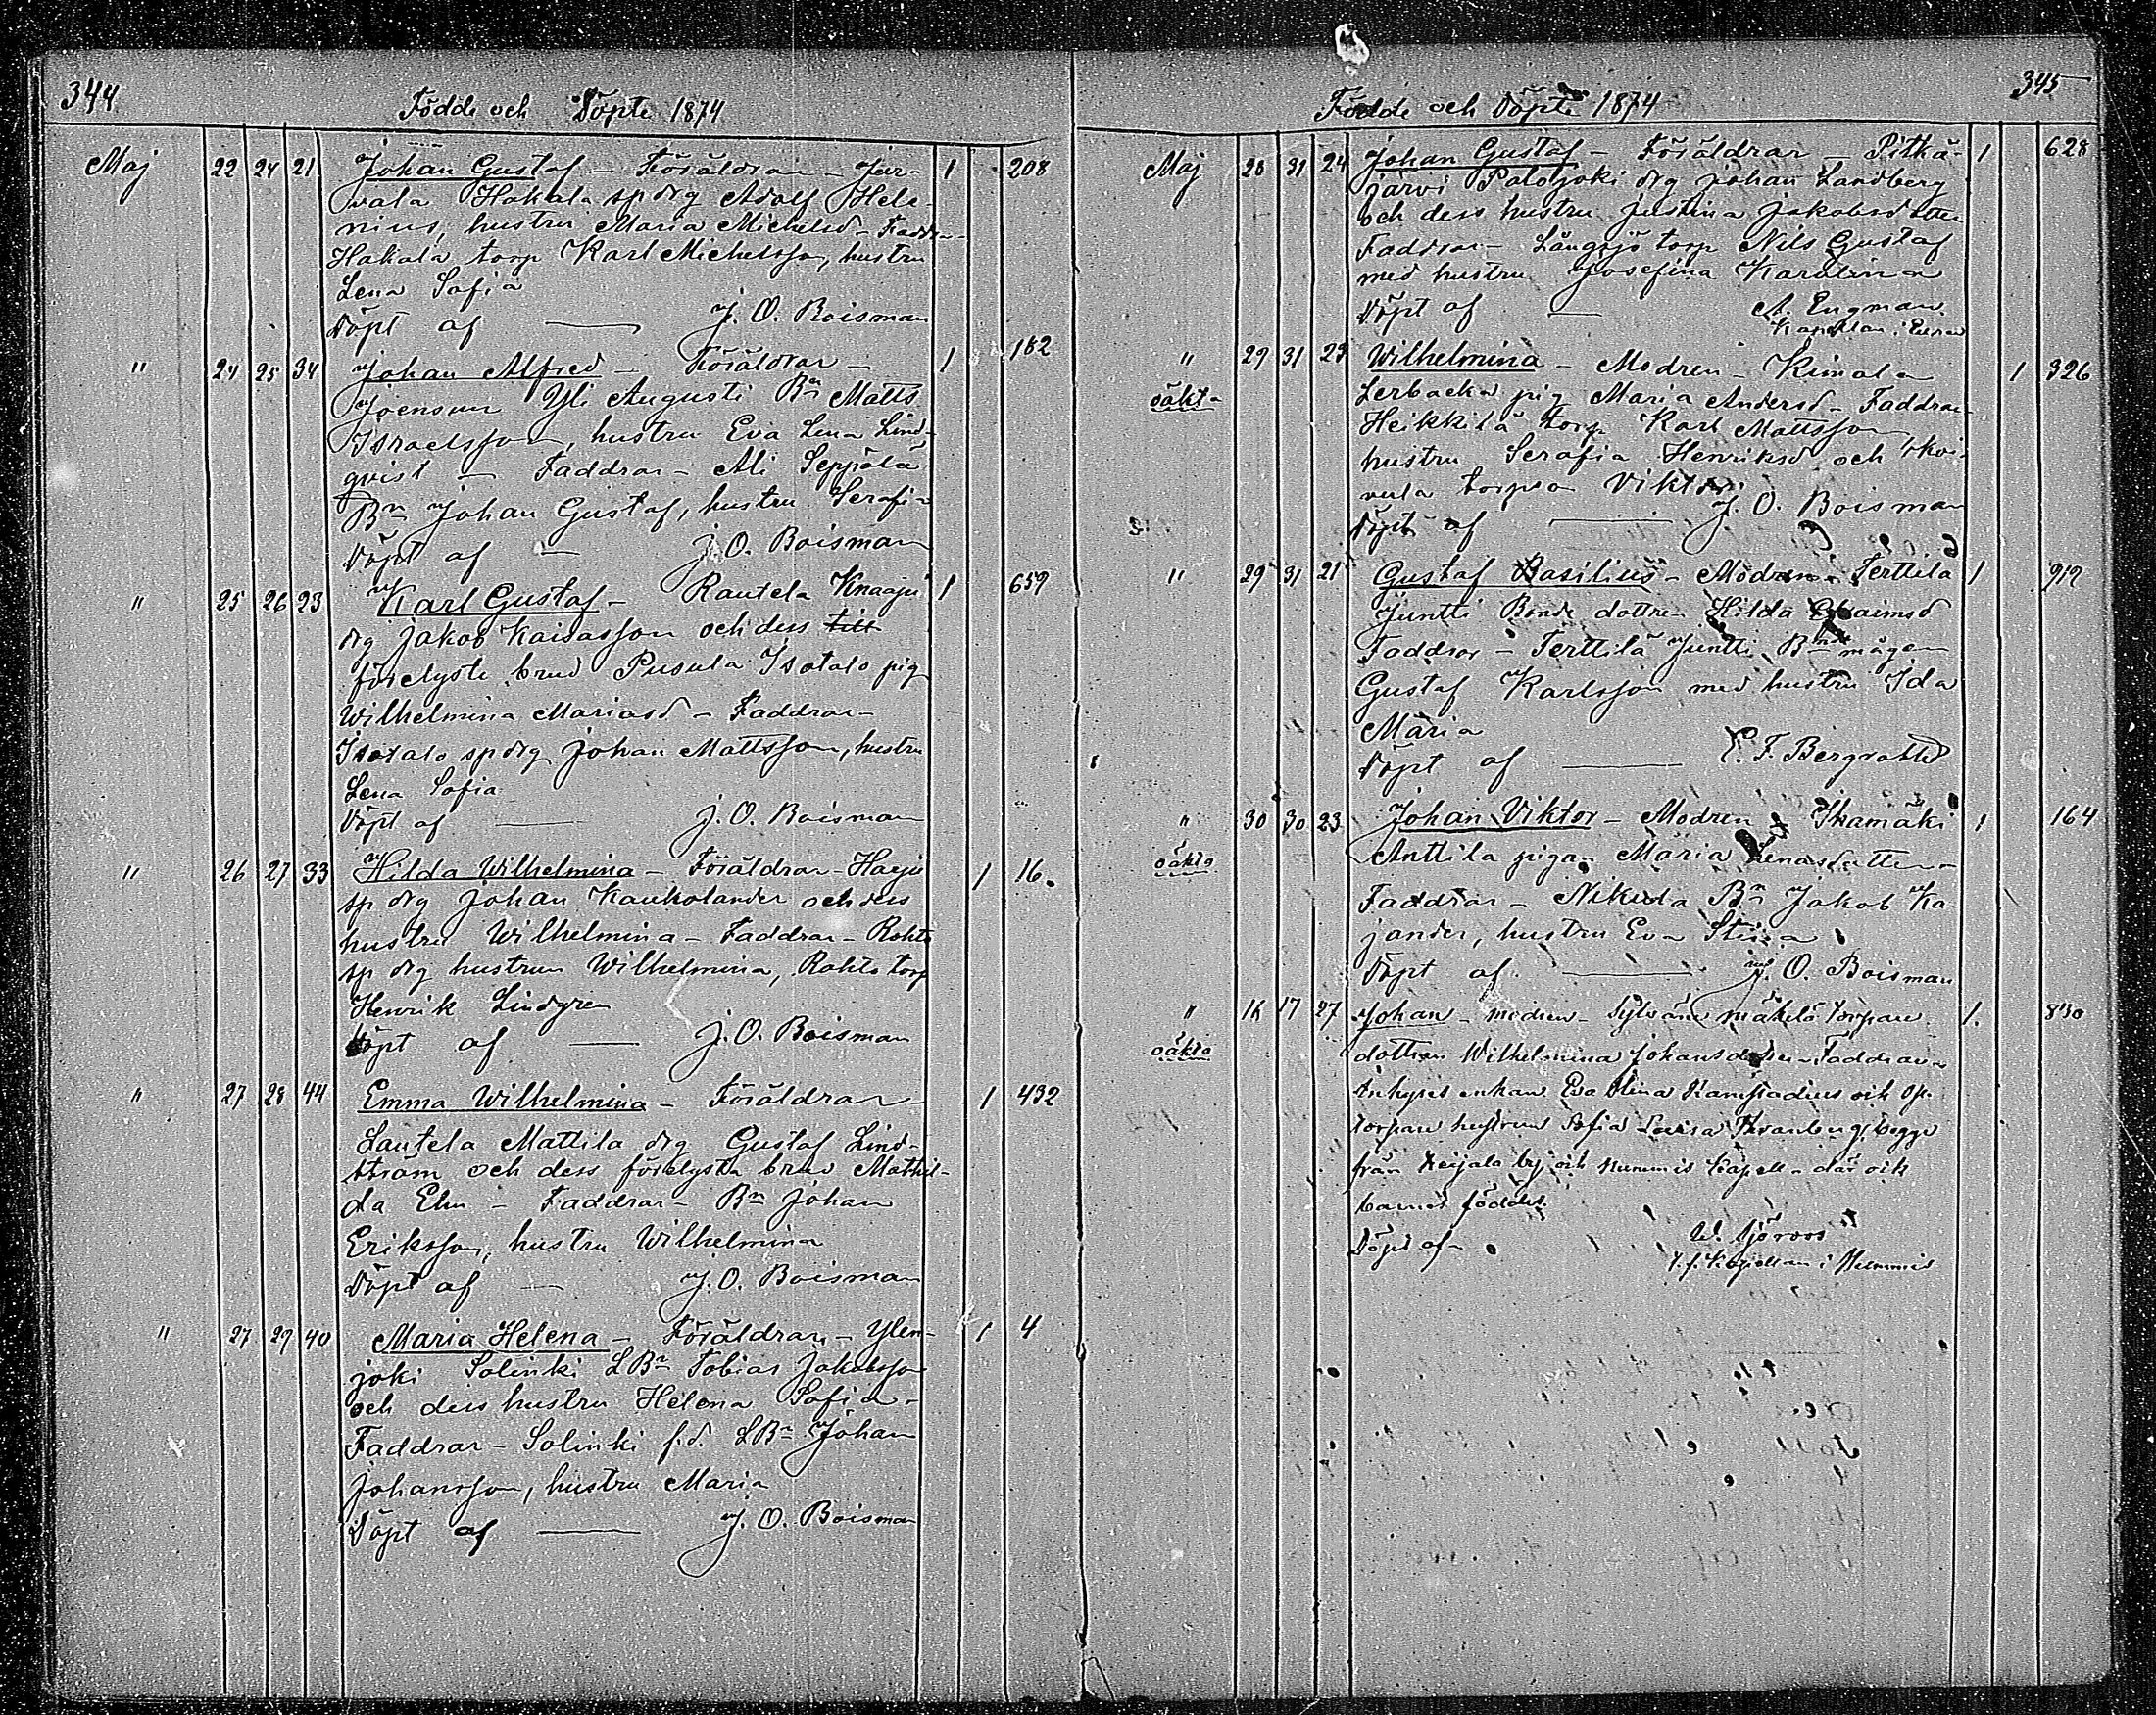 344
Födde och Döpte 1874
Maj 22 24 21 Johan Gustaf – Föräldrar – Jär- 1 208
vala Hakala sp drg Adolf Hele-
nius, hustru Maria Michelsd – Faddrar –
Hakala torp Karl Michelsson, hustru
Lena Sofia
Döpt af — J. O. Boisman
" 24 25 34 Johan Alfred – Föräldrar – 1 182
Joensuu Yli Augusti Bn Matts
Israelsson, hustru Eva Lena Lind-
qvist – Faddrar – Ali Seppälä
Bn Johan Gustaf, hustru Serafia
Döpt af — J. O. Boisman
" 25 26 23 Karl Gustaf – Rautela Knaapi 1 659
drg Jakob Kaisasson och dess till
förelyste brud Pusula Isotalo pig
Wilhelmina Mariasd – Faddrar –
Isotalo sp drg Johan Mattsson, hustru
Lena Sofia
Döpt af — J. O. Boisman
" 26 27 33 Hilda Wilhelmina – Föräldrar – Harju 1 16.
sp drg Johan Kaukolander och dess
hustru Wilhelmina – Faddrar – Rohto
sp drg hustrun Wilhelmina, Rohto torp
Henrik Lindgren
Döpt af — J. O. Boisman
" 27 28 44 Emma Wilhelmina – Föräldrar – 1 432
Lautela Mattila drg Gustaf Lind-
ström och dess förelysta brud Mathil-
da Elm – Faddrar – Bn Johan
Eriksson, hustru Wilhelmina
Döpt af — J. O. Boisman
" 27 29 40 Maria Helena – Föräldrar – Ylen- 1 4
joki Solinki LBn Tobias Jakobsson
och dess hustru Helena Sofia –
Faddrar – Solinki f.d. LBn Johan
Johansson, hustru Maria
Döpt af — J. O. Boisman
345
Födde och Döpte 1874
Maj 28 31 24 Johan Gustaf – Föräldrar – Pitkä- 1 628
järvi Palojoki drg Johan Landberg
och dess hustru Justina Jakobsdotter
Faddrar – Långsjö torp Nils Gustaf
med hustru Josefina Karolina
Döpt af — A. Engman
Kapellan i
" 29 31 29 Wilhelmina – Modren – Kimala 1 326
oäkta Lerbacka pig Maria Andersd – Faddrar –
Heikkilä torp Karl Mattsson
hustru Serafia Henriksd och Koi-
vula torpson Viktor
Döpt af — J. O. Boisman
" 29 31 21 Gustaf Basilius – Modren – Terttilä 1 912
Juntti Bonde dottren Hilda
Faddrar – Terttilä Juntti Bn mågen
Gustaf Karlsson med hustru Ida
Maria
Döpt af — F. Bergroth
" 30 30 23 Johan Viktor – Modren – Ihamäki 1 164
oäkta Anttila pigan Maria Lenasdotter –
Faddrar – Nikula Bn Jakob Ka-
jander, hustru Eva Stina
Döpt af — J. O. Boisman
" 16 17 27 Johan – modren – mäkelä torpare 1. 830
oäkta dottren Wilhelmina Johansdotter – Faddrar –
enkan Eva Stina och sp.
torpare hustrun Sofia Lovisa begge
från by och Nummis Capell – där och
barnet föddes.
Döpt af – W. Sjöroos
t. f. Kapellan i Nummis